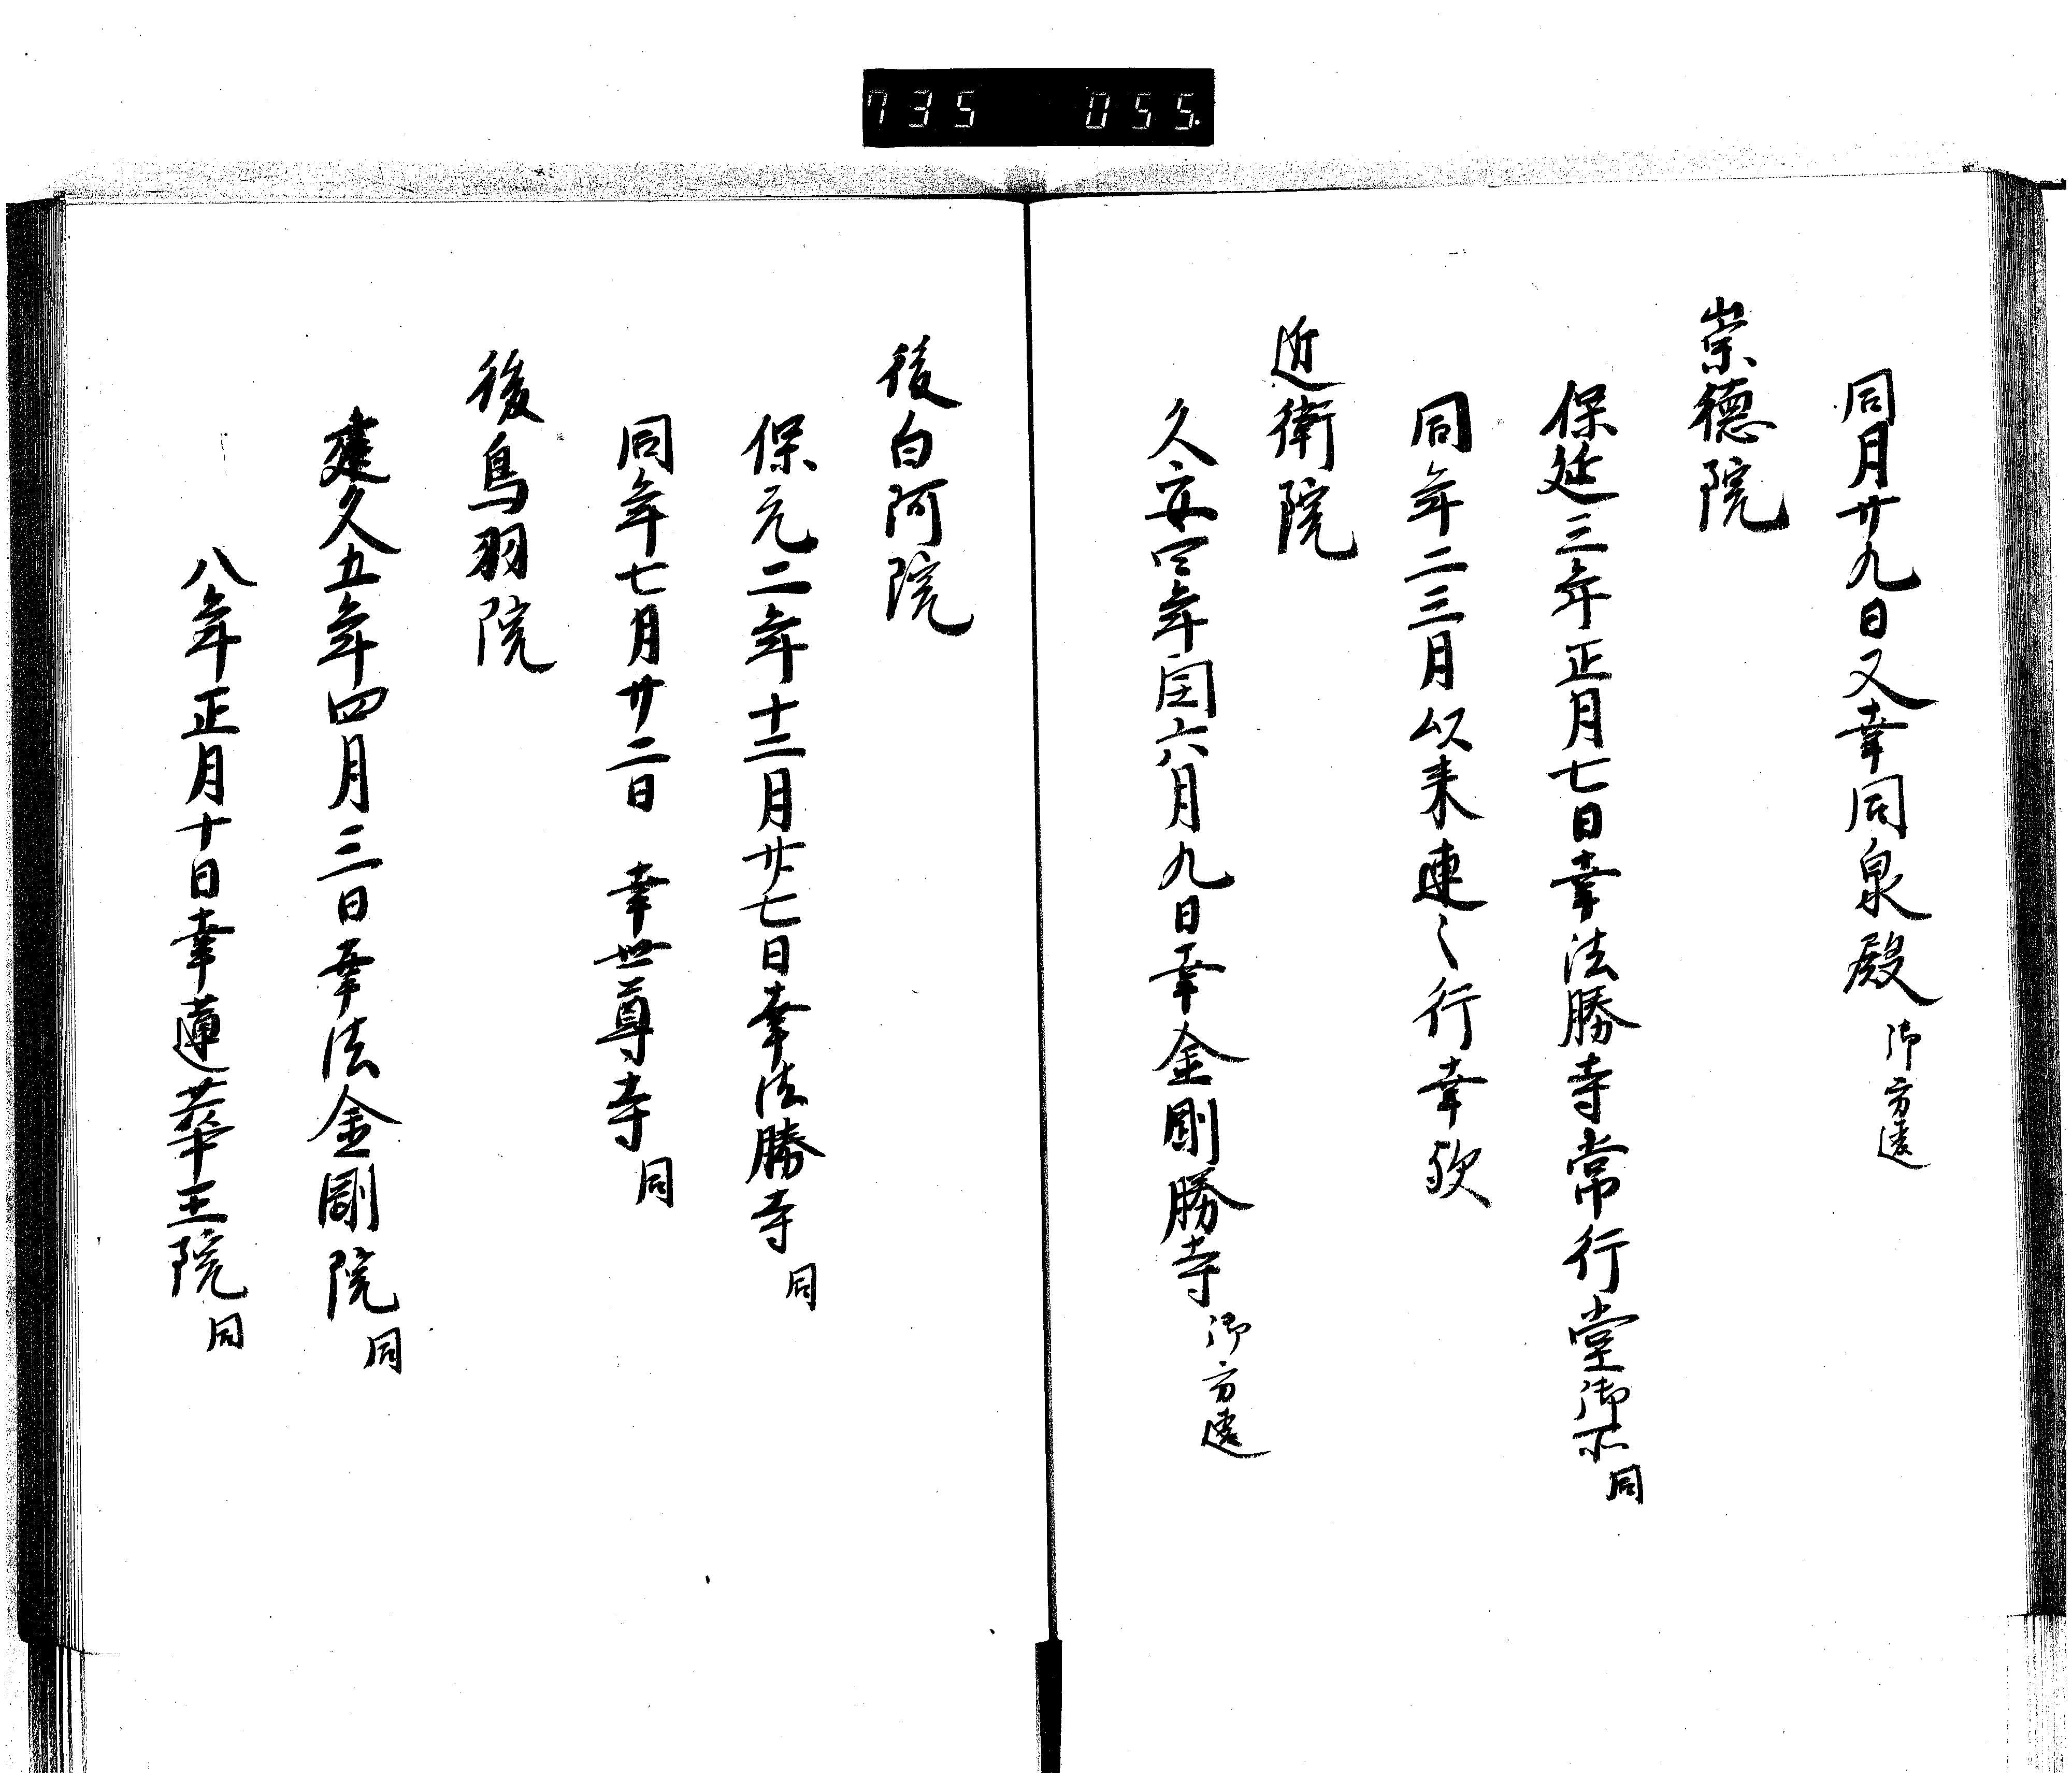 735 055
同月廿九日又幸同泉殿御方違
崇徳院
保延三年正月七日幸法勝寺常行堂御所同
同年二三月以来連々行幸歟
近衛院
久安四年閏六月九日幸金剛勝寺御方違
後白河院
保元二年十二月廿七日幸法勝寺同
同年七月廿二日 幸世尊寺同
後鳥羽院
建久五年四月三日幸法金剛院同
八年正月十日幸蓮華王院同